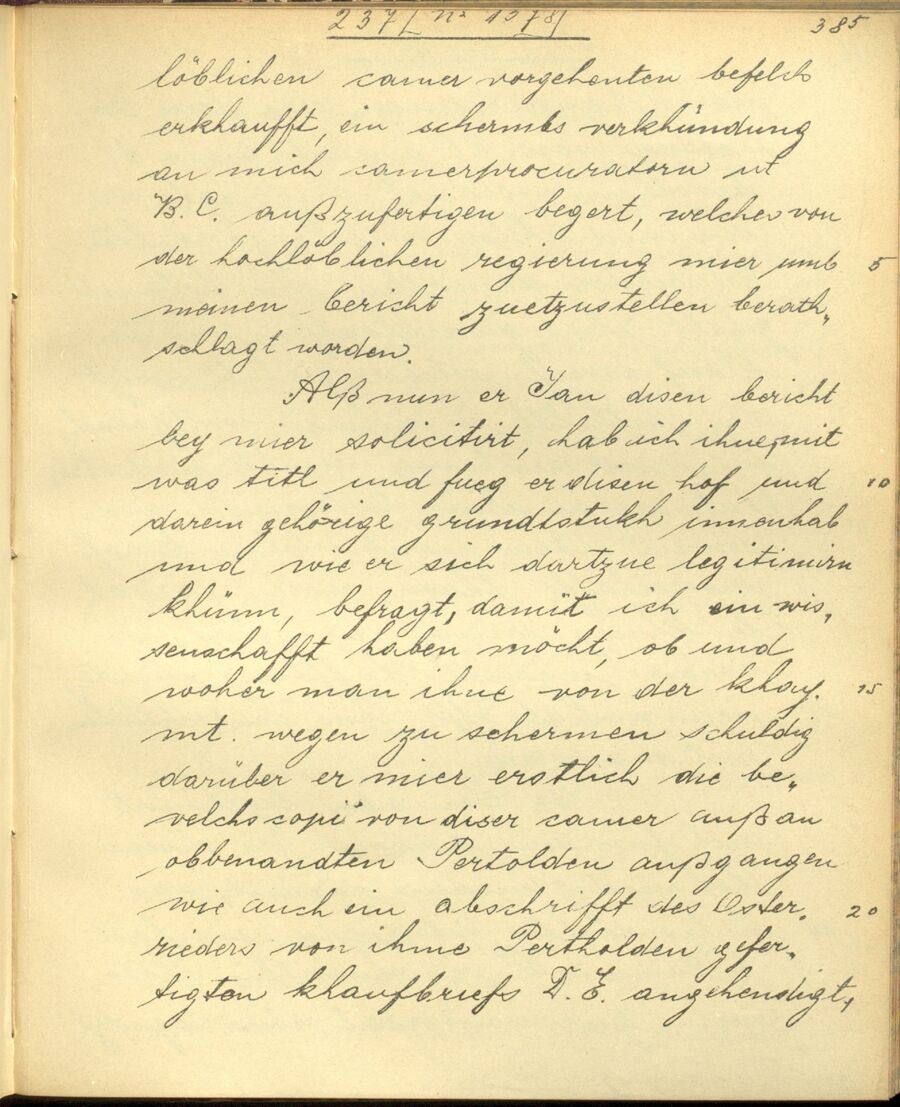 237/ nr 1578/ 385
löblichen camer vorgehenten befelch
erkhaufft, ein schermbs verkhündung
an mich camerprocuratorn ut
B. C. außzufertigen begert, welches von
der hochlöblichen regierung mier umb 5
meinen bericht zuetzustellen berath„
schlagt worden.
Alß nun er Jan disen bericht
bey mier solicitirt, hab ich ihne, mit
was titl und fueg er disen hof und 10
darein gehörige grundtstukh innenhab
und wie er sich dartzue legitimirn
khünn, befragt, damit ich ein wis„
senschafft haben möcht, ob und
woher man ihne von der khay. 15
mt. wegen zu schermen schuldig
darüber er mier erstlich die be„
velchscopi von diser camer auß an
obbenandten Pertolden außgangen
wie auch ein abschrifft des Oster„ 20
rieders von ihme Pertholden gefer„
tigten khaufbriefs D. E. angehendigt,